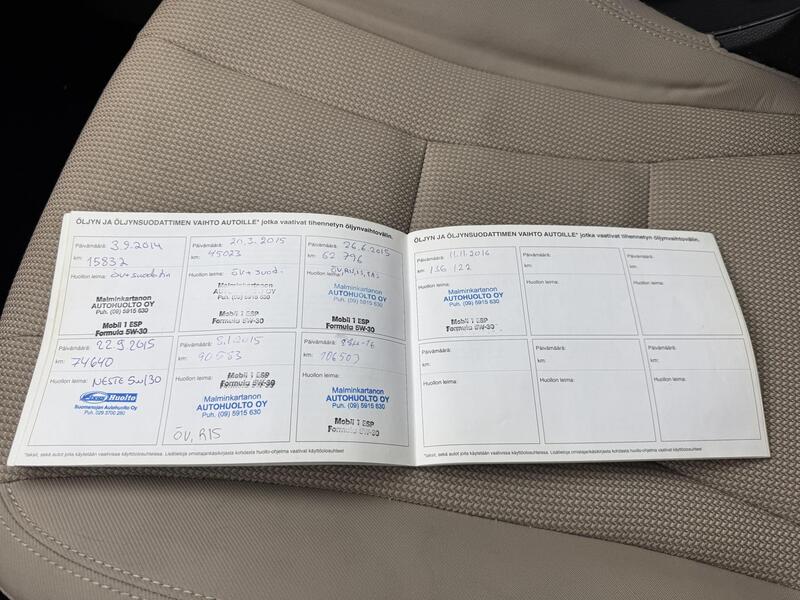 ÖLJYN JA ÖLJYNSUODATTIMEN VAIHTO AUTOILLE* jotka vaativat tihennetyn öljynvaihtovälin.
Päivämäärä: 3.9.2014
km: 15832
Huollon leima: ÖV+suodatin
Malminkartanon
AUTOHUOLTO OY
Puh. (09) 5915 630
Mobil 1 ESP
Formula 5W-30
Päivämäärä: 20.3.2015
km: 45023
Huollon leima: ÖV+suod.
Malminkartanon
AUTOHUOLTO OY
Puh. (09) 5915 630
Mobil 1 ESP
Formula 5W-30
Päivämäärä: 26.6.2015
km: 62 796
Huollon leima:
Malminkartanon
AUTOHUOLTO OY
Puh. (09) 5915 630
Mobil 1 ESP
Formula 5W-30
Päivämäärä: 22.9.2015
km: 74640
Huollon leima: NESTE 5W/30
Huolto
Suomenojan Autohuolto Oy
Päivämäärä: 5.1.2015
km: 90563
Huollon leima:
Mobil 1 ESP
Formula 5W-30
Malminkartanon
AUTOHUOLTO OY
Puh. (09) 5915 630
ÖV, R15
Päivämäärä:
km: 106503
Huollon leima:
Malminkartanon
AUTOHUOLTO OY
Puh. (09) 5915 630
Mobil 1 ESP
Formula 5W-30
*taksit, sekä autot joita käytetään vaativissa käyttöolosuhteissa. Lisätietoja omistajankäsikirjasta kohdasta huolto-ohjelma vaativat käyttöolosuhteet
ÖLJYN JA ÖLJYNSUODATTIMEN VAIHTO AUTOILLE* jotka vaativat tihennetyn öljynvaihtovälin.
Päivämäärä: 11.11.2016
km: 136 122
Huollon leima:
Malminkartanon
AUTOHUOLTO OY
Puh. (09) 5915 630
Mobil 1 ESP
Formula 5W-30
Päivämäärä:
km:
Huollon leima:
Päivämäärä:
km:
Huollon leima:
Päivämäärä:
km:
Huollon leima:
Päivämäärä:
km:
Huollon leima:
Päivämäärä:
km:
Huollon leima:
*taksit, sekä autot joita käytetään vaativissa käyttöolosuhteissa. Lisätietoja omistajankäsikirjasta kohdasta huolto-ohjelma vaativat käyttöolosuhteet